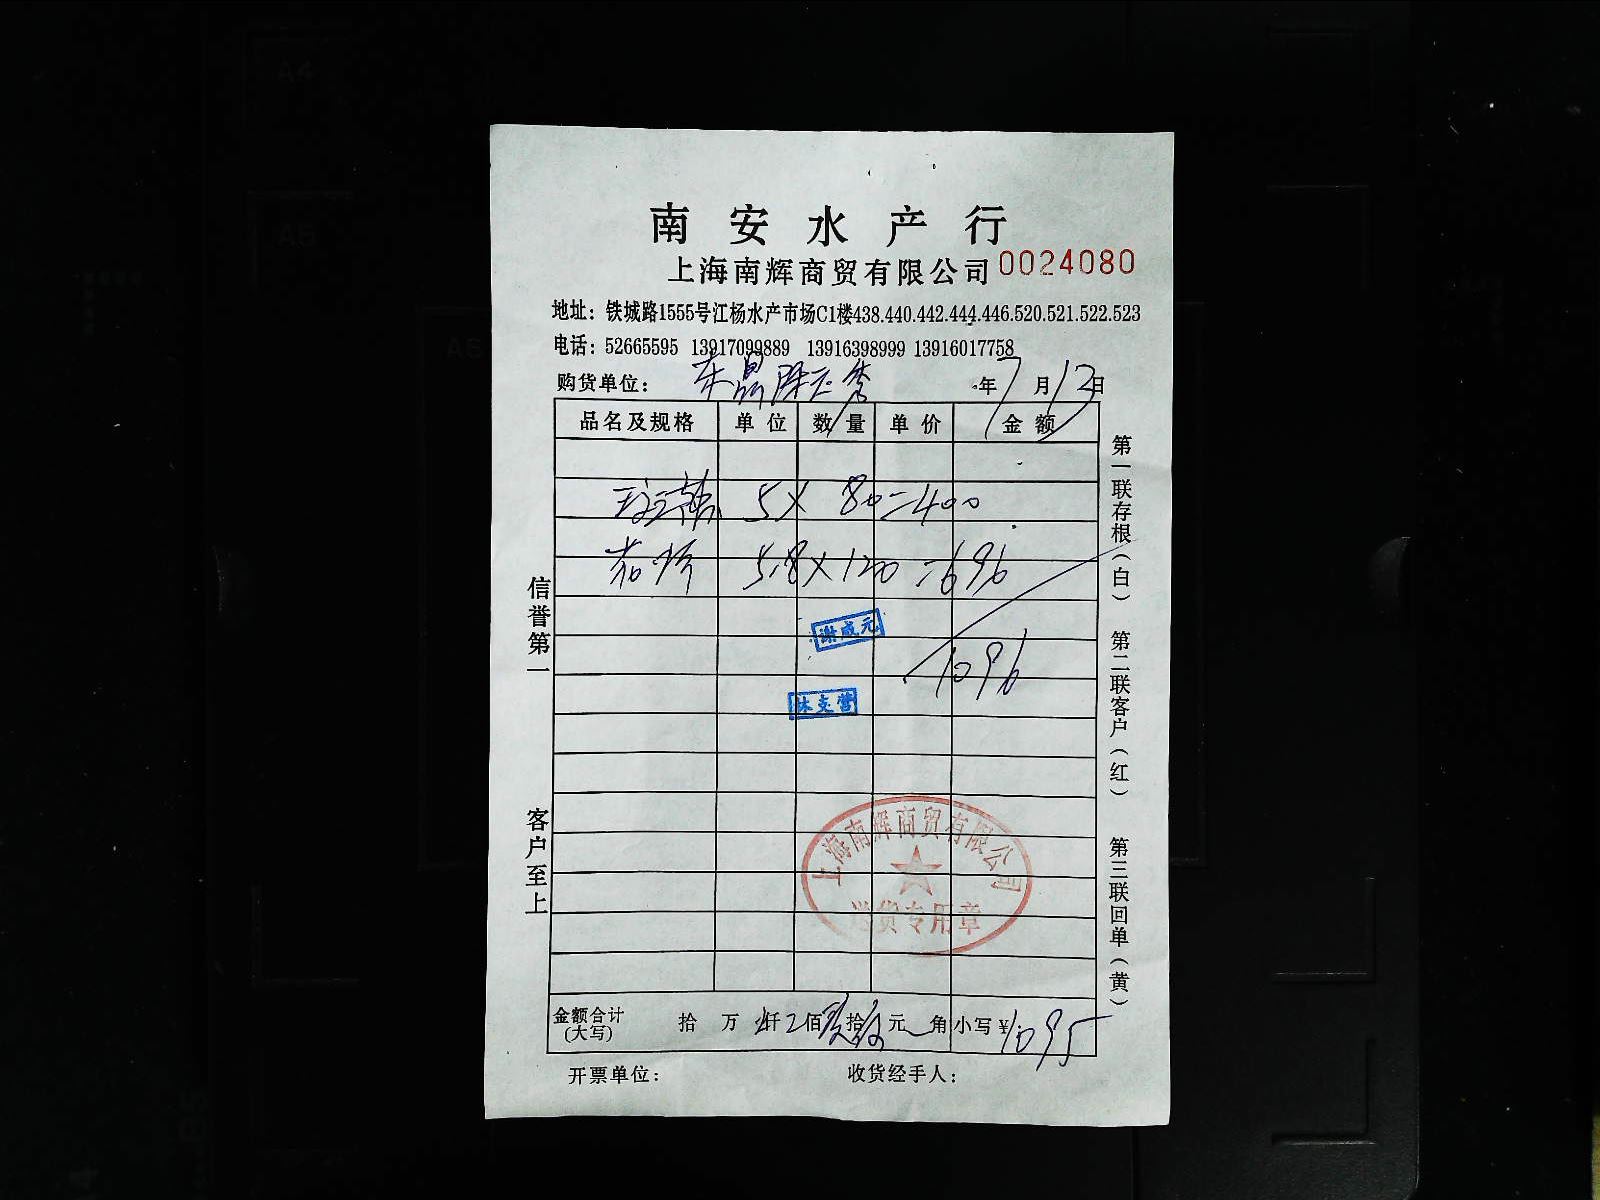 南安水产行
上海南辉商贸有限公司 0024080
地址：铁城路1555号江杨水产市场C1楼438.440.442.444.446.520.521.522.523
电话：52665595 13917099889 13916398999 13916017758
购货单位： 东晶 年7月13日
品名及规格 单位 数量 单价 金额
5×80=400
5.8×120=696
1096
谢成元
林支营
上海南辉商贸有限公司
送货专用章
金额合计(大写) 拾 万 仟 佰 拾 元 角 小写¥1095
开票单位： 收货经手人：
信誉第一
客户至上
第一联存根（白）
第二联客户（红）
第三联回单（黄）